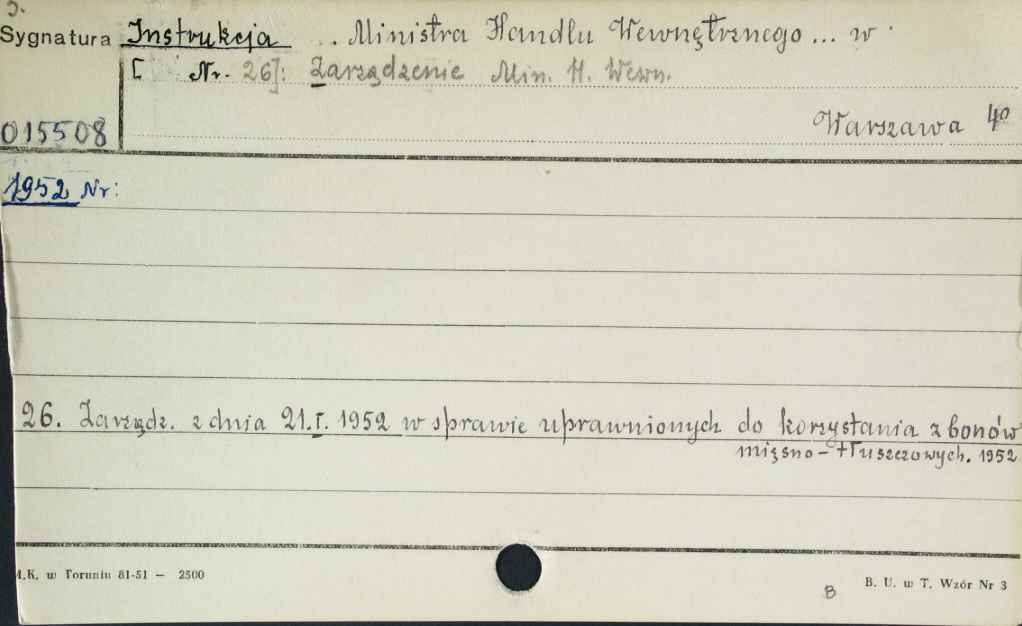 Sygnatura Instrukcja . . Ministra Handlu Wewnętrznego ... w
[ Nr. 26]: Zarządzenie Min. H. Wewn.
015508 Warszawa 4º
1952 Nr:
26. Zarządz. z dnia 21.I. 1952 w sprawie uprawnionych do korzystania z bonów
mięsno-tłuszczowych. 1952
M.K. w Toruniu 81-51 — 2500
B B. U. w T. Wzór Nr 3